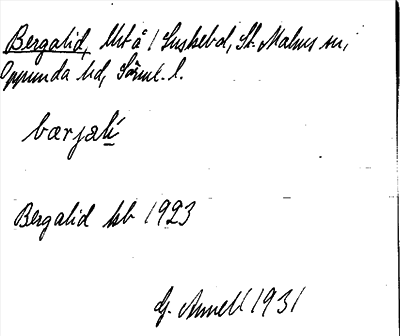 Bergalid, Utå i Luskebol, St. Malms sn,
Oppunda hd, Söml. l.
bærjalí
Bergalid kb 1923
G. Annell 1931